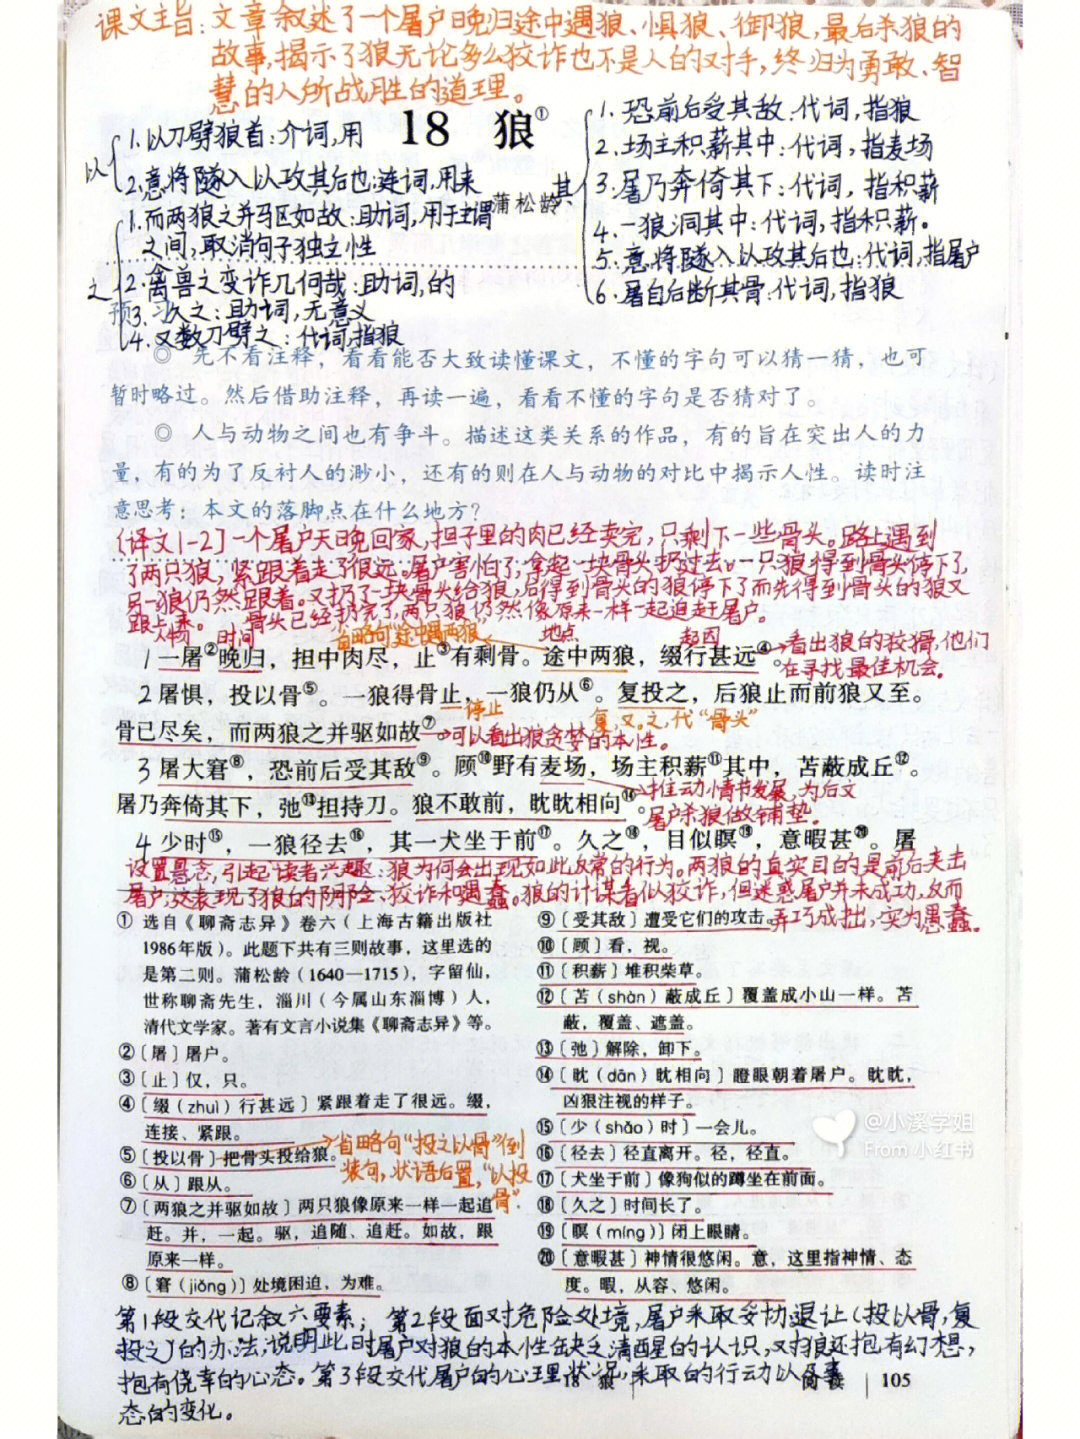 课文主旨:文章叙述了一个屠户晚归途中遇狼、惧狼、御狼,最后杀狼的
故事,揭示了狼无论多么狡诈也不是人的对手,终归为勇敢、智
慧的人所战胜的道理。
18 狼①
蒲松龄
以
1.以刀劈狼首:介词,用
2.意将隧入以攻其后也:连词,用来
之
1.而两狼之并驱如故:助词,用于主谓
之间,取消句子独立性
2.禽兽之变诈几何哉:助词,的
3.久之:助词,无意义
4.又数刀毙之:代词,指狼
其
1.恐前后受其敌:代词,指狼
2.场主积薪其中:代词,指麦场
3.屠乃奔倚其下:代词,指积薪
4.一狼洞其中:代词,指积薪。
5.意将隧入以攻其后也:代词,指屠户
6.屠自后断其骨:代词,指狼
预习
◎ 先不看注释,看看能否大致读懂课文,不懂的字句可以猜一猜,也可
暂时略过。然后借助注释,再读一遍,看看不懂的字句是否猜对了。
◎ 人与动物之间也有争斗。描述这类关系的作品,有的旨在突出人的力
量,有的为了反衬人的渺小,还有的则在人与动物的对比中揭示人性。读时注
意思考:本文的落脚点在什么地方?
[译文1-2]一个屠户天晚回家,担子里的肉已经卖完,只剩下一些骨头。路上遇到
了两只狼,紧跟着走了很远。屠户害怕了,拿起一块骨头扔过去。一只狼得到骨头停下了,
另一狼仍然跟着。又扔了一块骨头给狼,后得到骨头的狼停下了而先得到骨头的狼又
跟上来。骨头已经扔完了,两只狼仍然像原来一样一起追赶屠户。
人物 时间 省略句"途中遇两狼" 地点 起因
1一屠②晚归,担中肉尽,止③有剩骨。途中两狼,缀行甚远④。
看出狼的狡猾,他们
在寻找最佳机会。
2屠惧,投以骨⑤。一狼得骨止,一狼仍从⑥。复投之,后狼止而前狼又至。
停止 复,又。之,代"骨头"
骨已尽矣,而两狼之并驱如故⑦。
可以看出狼贪婪的本性。
3屠大窘⑧,恐前后受其敌⑨。顾⑩野有麦场,场主积薪⑪其中,苫蔽成丘⑫。
屠乃奔倚其下,弛⑬担持刀。狼不敢前,眈眈相向⑭。
推动情节发展,为后文
屠户杀狼做铺垫。
4少时⑮,一狼径去⑯,其一犬坐于前⑰。久之⑱,目似瞑⑲,意暇甚⑳。屠
设置悬念,引起读者兴趣:狼为何会出现如此反常的行为。两狼的真实目的是前后夹击
屠户,这表现了狼的阴险、狡诈和愚蠢。狼的计谋看似狡诈,但迷惑屠户并未成功,反而
弄巧成拙,实为愚蠢。
① 选自《聊斋志异》卷六(上海古籍出版社
1986年版)。此题下共有三则故事,这里选的
是第二则。蒲松龄(1640—1715),字留仙,
世称聊斋先生,淄川(今属山东淄博)人,
清代文学家。著有文言小说集《聊斋志异》等。
②〔屠〕屠户。
③〔止〕仅,只。
④〔缀(zhuì)行甚远〕紧跟着走了很远。缀,
连接、紧跟。
⑤〔投以骨〕把骨头投给狼。
省略句"投之以骨"倒
装句,状语后置,"以投
骨"。
⑥〔从〕跟从。
⑦〔两狼之并驱如故〕两只狼像原来一样一起追
赶。并,一起。驱,追随、追赶。如故,跟
原来一样。
⑧〔窘(jiǒng)〕处境困迫,为难。
⑨〔受其敌〕遭受它们的攻击。
⑩〔顾〕看,视。
⑪〔积薪〕堆积柴草。
⑫〔苫(shàn)蔽成丘〕覆盖成小山一样。苫
蔽,覆盖、遮盖。
⑬〔弛〕解除,卸下。
⑭〔眈(dān)眈相向〕瞪眼朝着屠户。眈眈,
凶狠注视的样子。
⑮〔少(shǎo)时〕一会儿。
⑯〔径去〕径直离开。径,径直。
⑰〔犬坐于前〕像狗似的蹲坐在前面。
⑱〔久之〕时间长了。
⑲〔瞑(míng)〕闭上眼睛。
⑳〔意暇甚〕神情很悠闲。意,这里指神情、态
度。暇,从容、悠闲。
@小溪学姐
From 小红书
第1段交代记叙六要素;第2段面对危险处境,屠户采取妥协退让(投以骨,复
投之)的办法,说明此时屠户对狼的本性缺乏清醒的认识,对狼还抱有幻想,
抱有侥幸的心态。第3段交代屠户的心理状况,采取的行动以及事
态的变化。
18 狼
阅读 105